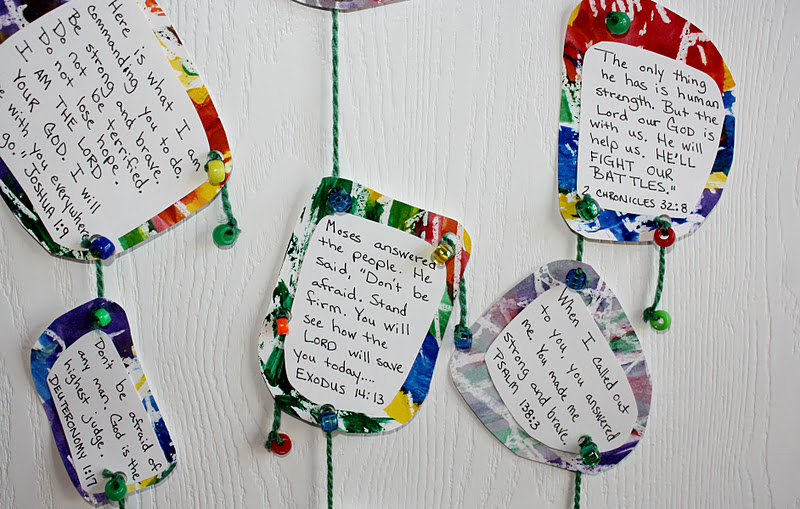 Here is what I am
commanding you to do.
Be strong and brave.
Do not be terrified.
Do not lose hope.
I AM THE LORD
YOUR GOD. I will
with you everywhere
go." JOSHUA 1:9
Don't be afraid of
any man. God is the
highest judge.
DEUTERONOMY 1:17
Moses answered
the people. He
said, "Don't be
afraid. Stand
firm. You will
see how the
LORD will save
you today....
EXODUS 14:13
The only thing
he has is human
strength. But the
Lord our GOD is
with us. He will
help us. HE'LL
FIGHT OUR
BATTLES."
2 CHRONICLES 32:8
When I called out
to you, you answered
me. You made me
strong and brave.
PSALM 138:3